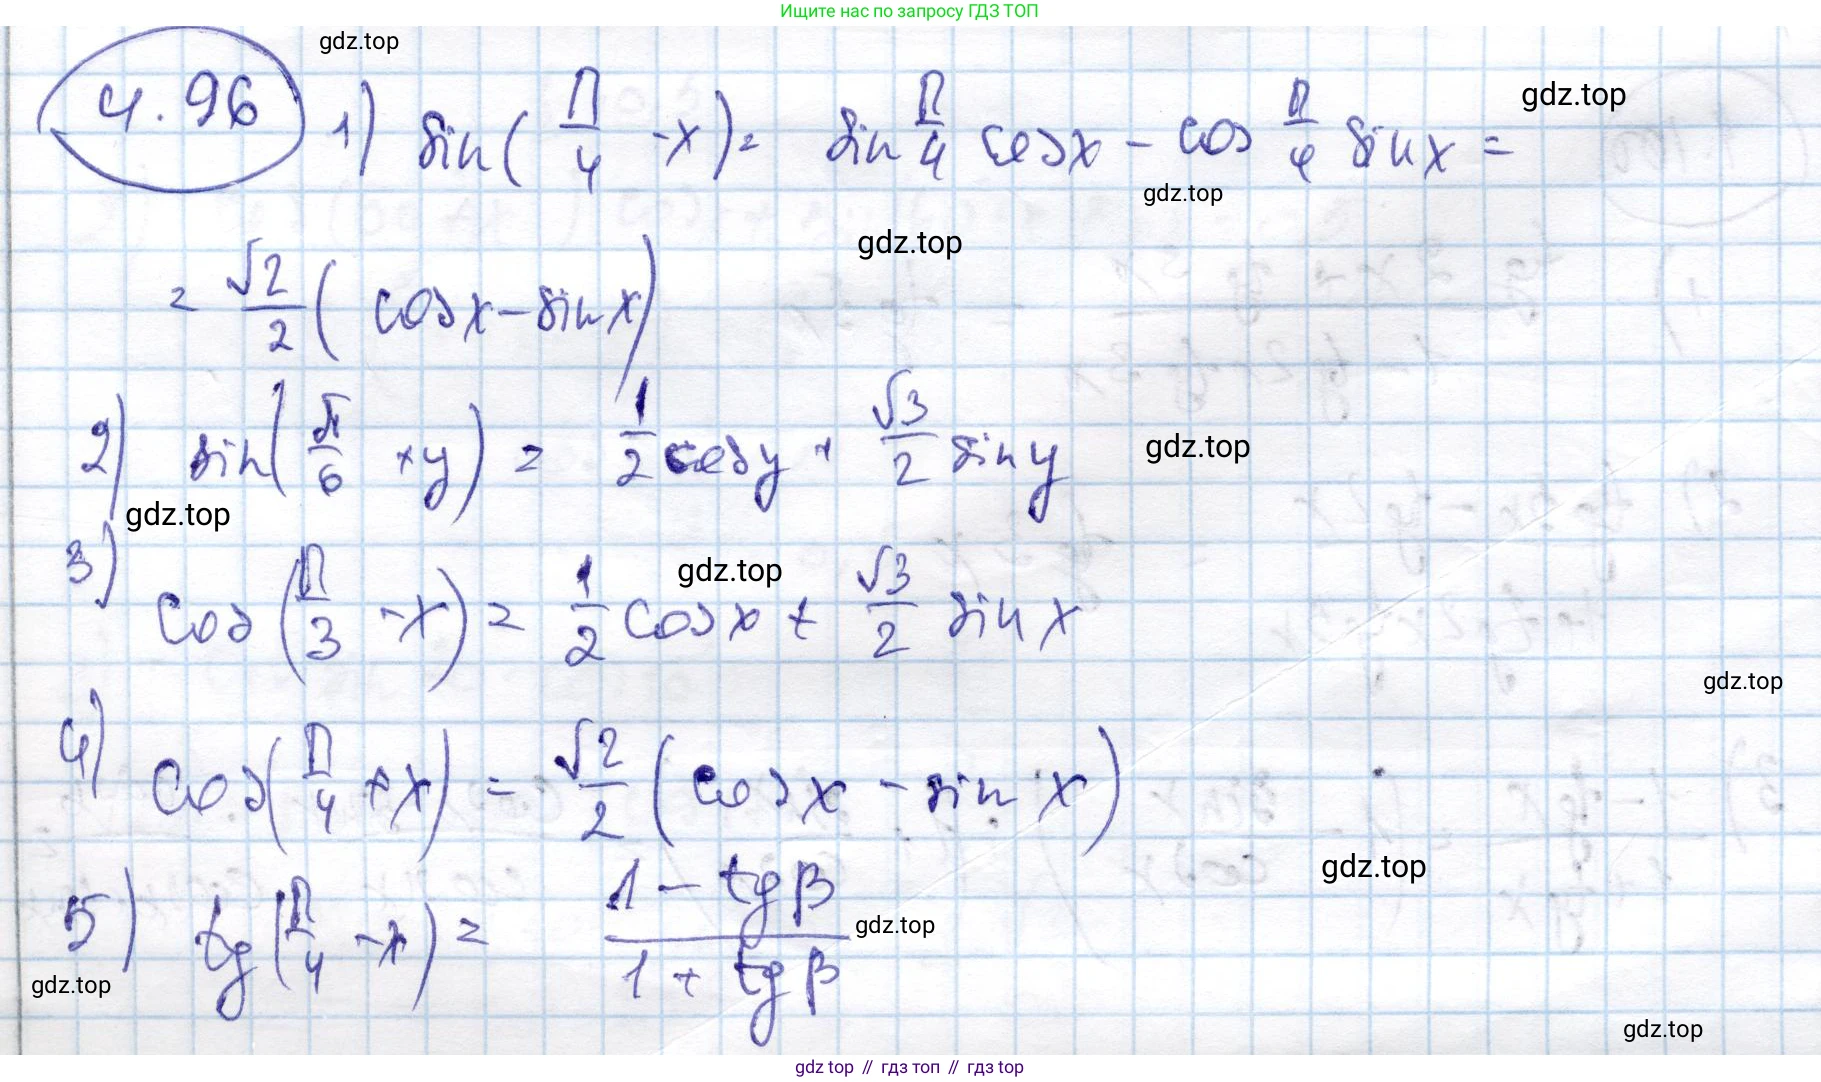 Ищите нас по запросу ГДЗ ТОП
gdz.top
4.96 1) sin(π/4 -x)= sin π/4 cosx - cos π/4 sinx =
gdz.top
gdz.top
gdz.top
= √2/2 ( cosx - sinx)
2) sin(π/6 +y) = 1/2 cosy + √3/2 siny
gdz.top
gdz.top
3) cos(π/3 -x) = 1/2 cosx + √3/2 sinx
gdz.top
gdz.top
4) cos(π/4 +x) = √2/2 (cosx - sinx)
gdz.top
5) tg(π/4 -x) = 1 - tgβ / 1 + tgβ
gdz.top
gdz.top
gdz.top
gdz.top // гдз топ // gdz.top